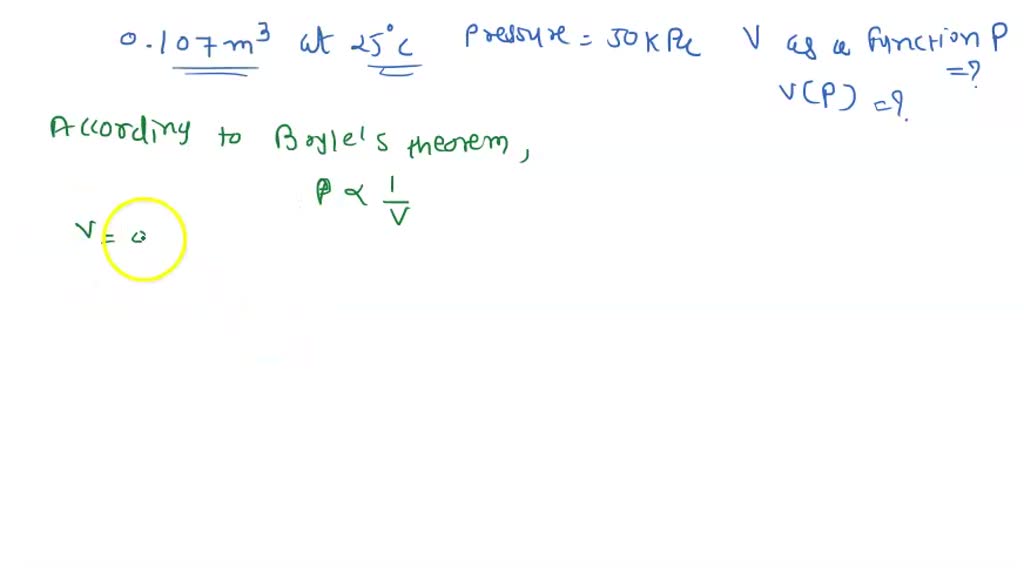 0.107 m³ at 25°C Pressure = 50 KPa V as a Function P = ?
V(P) = ?
According to Boyle's theorem,
P ∝ 1/V
V = 0